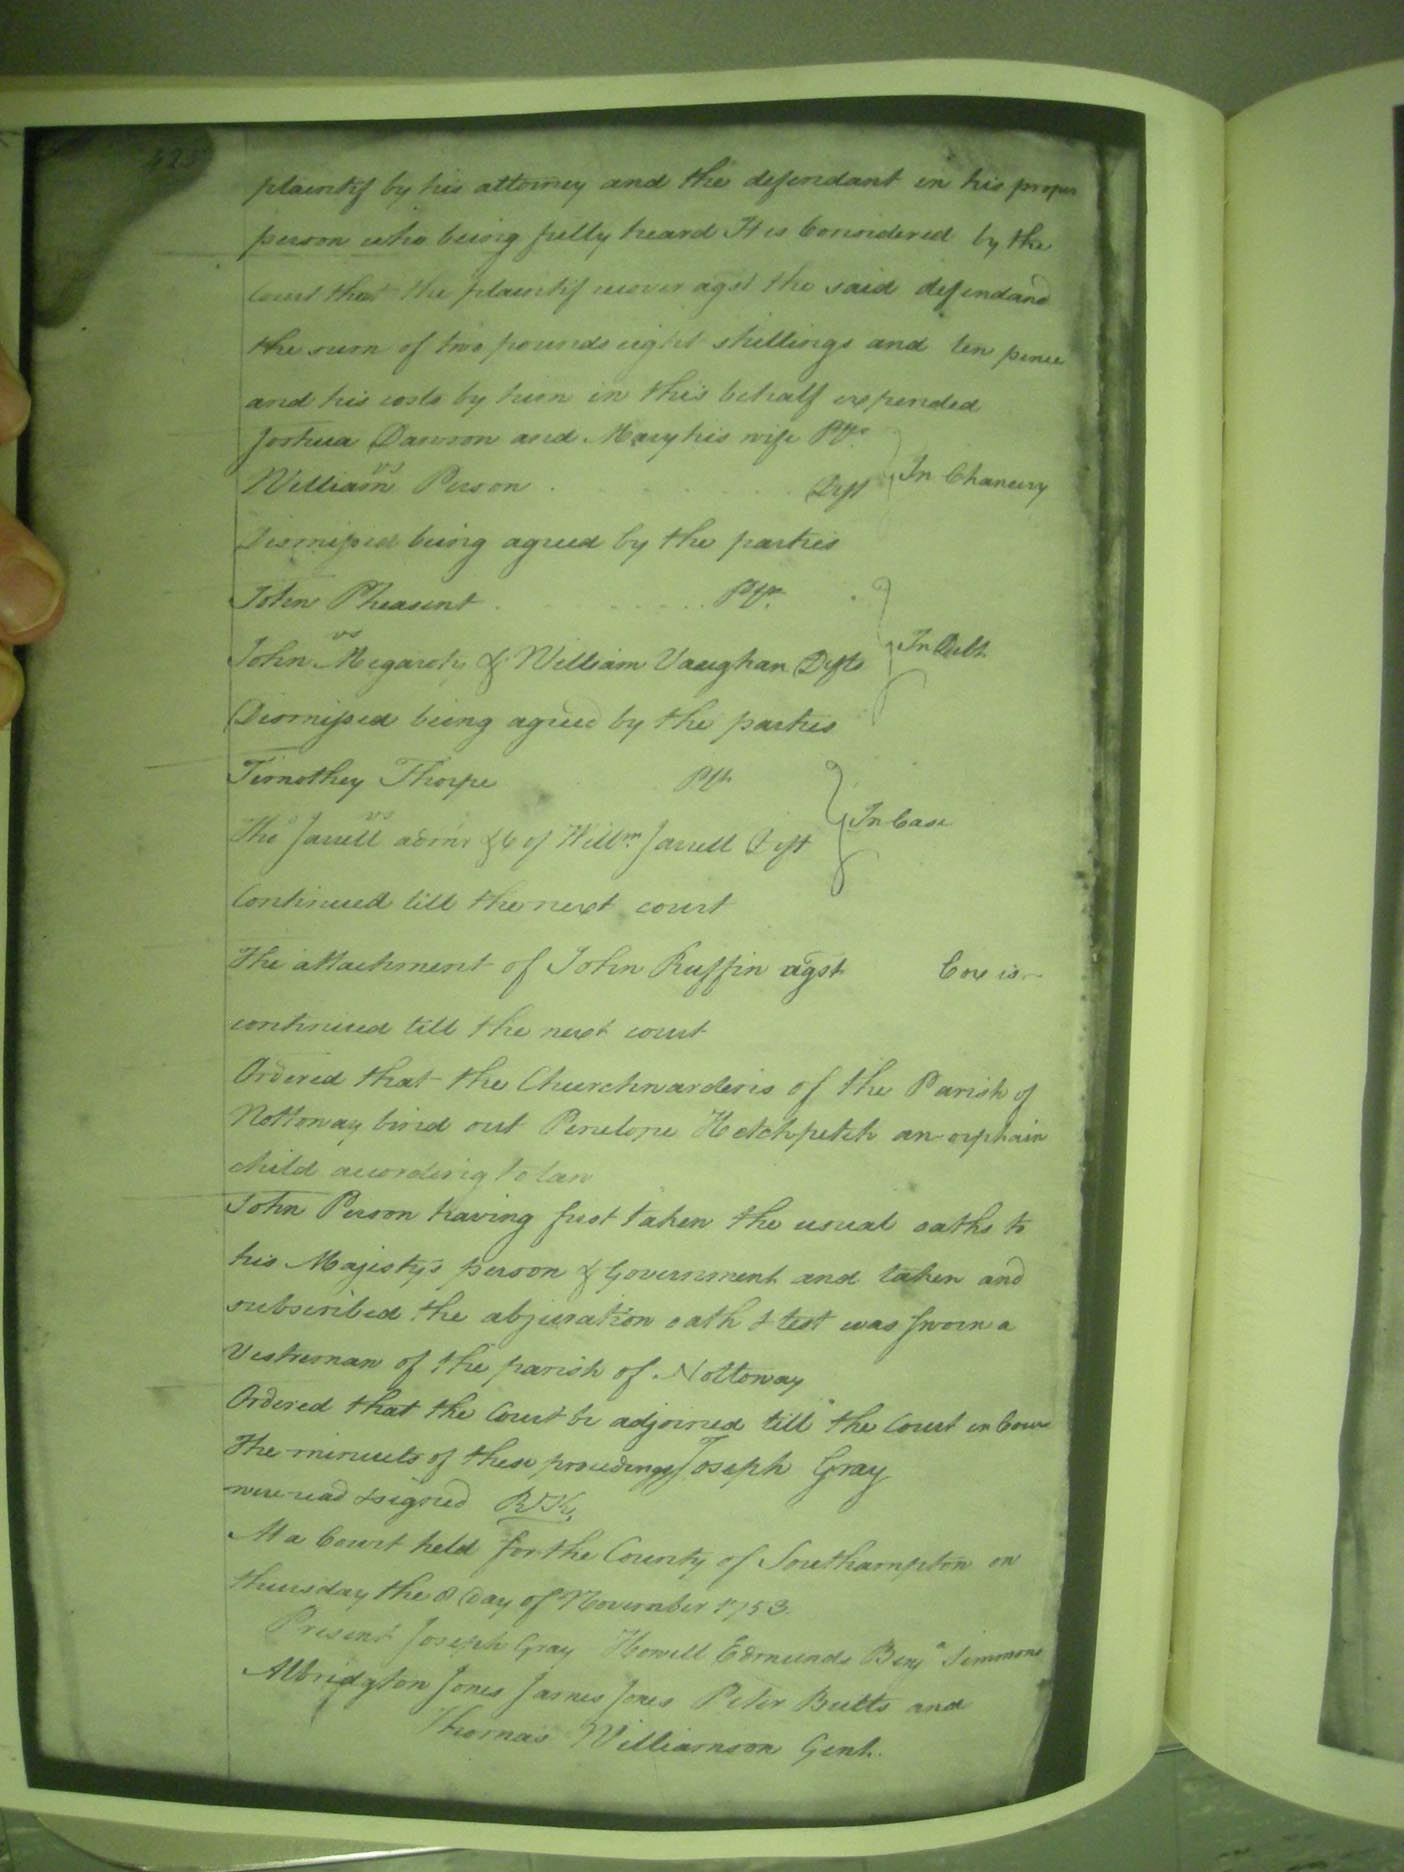 425
plaintif by his attorney and the defendant in his proper
person who being fully heard It is Considered by the
Court that the plaintif recover agst the said defendand
the sum of two pounds eight shillings and ten pence
and his costs by him in this behalf expended
Joshua Dawson and Mary his wife Plfs
vs
William Person Deft In Chancery
Dismissed being agreed by the parties
John Pheasent Plfr
vs
John Megarok & William Vaughan Defts In Debt
Dismissed being agreed by the parties
Timothey Thorpe Plfr
vs
Tho.s Jarrell admr &c of Willm Jarrell Deft In Case
Continued till the next court
The attachment of John Ruffin agst Cox is
continued till the next court
Ordered that the Churchwardens of the Parish of
Nottoway bind out Penelope Hotchpetch an orphain
child according to law
John Person having first taken the usual oaths to
his Majestys person & Government and taken and
subscribed the abjuration oath & test was sworn a
Vestreman of the parish of Nottoway
Ordered that the Court be adjoined till the Court in Course
The minuets of these proceedings Joseph Gray
were read & signed
At a Court held for the County of Southampton on
thursday the 8 Day of November 1753
Present Joseph Gray Howell Edmunds Benja Simmons
Albridgton Jones James Jones Peter Butts and
Thomas Williamson Gent.